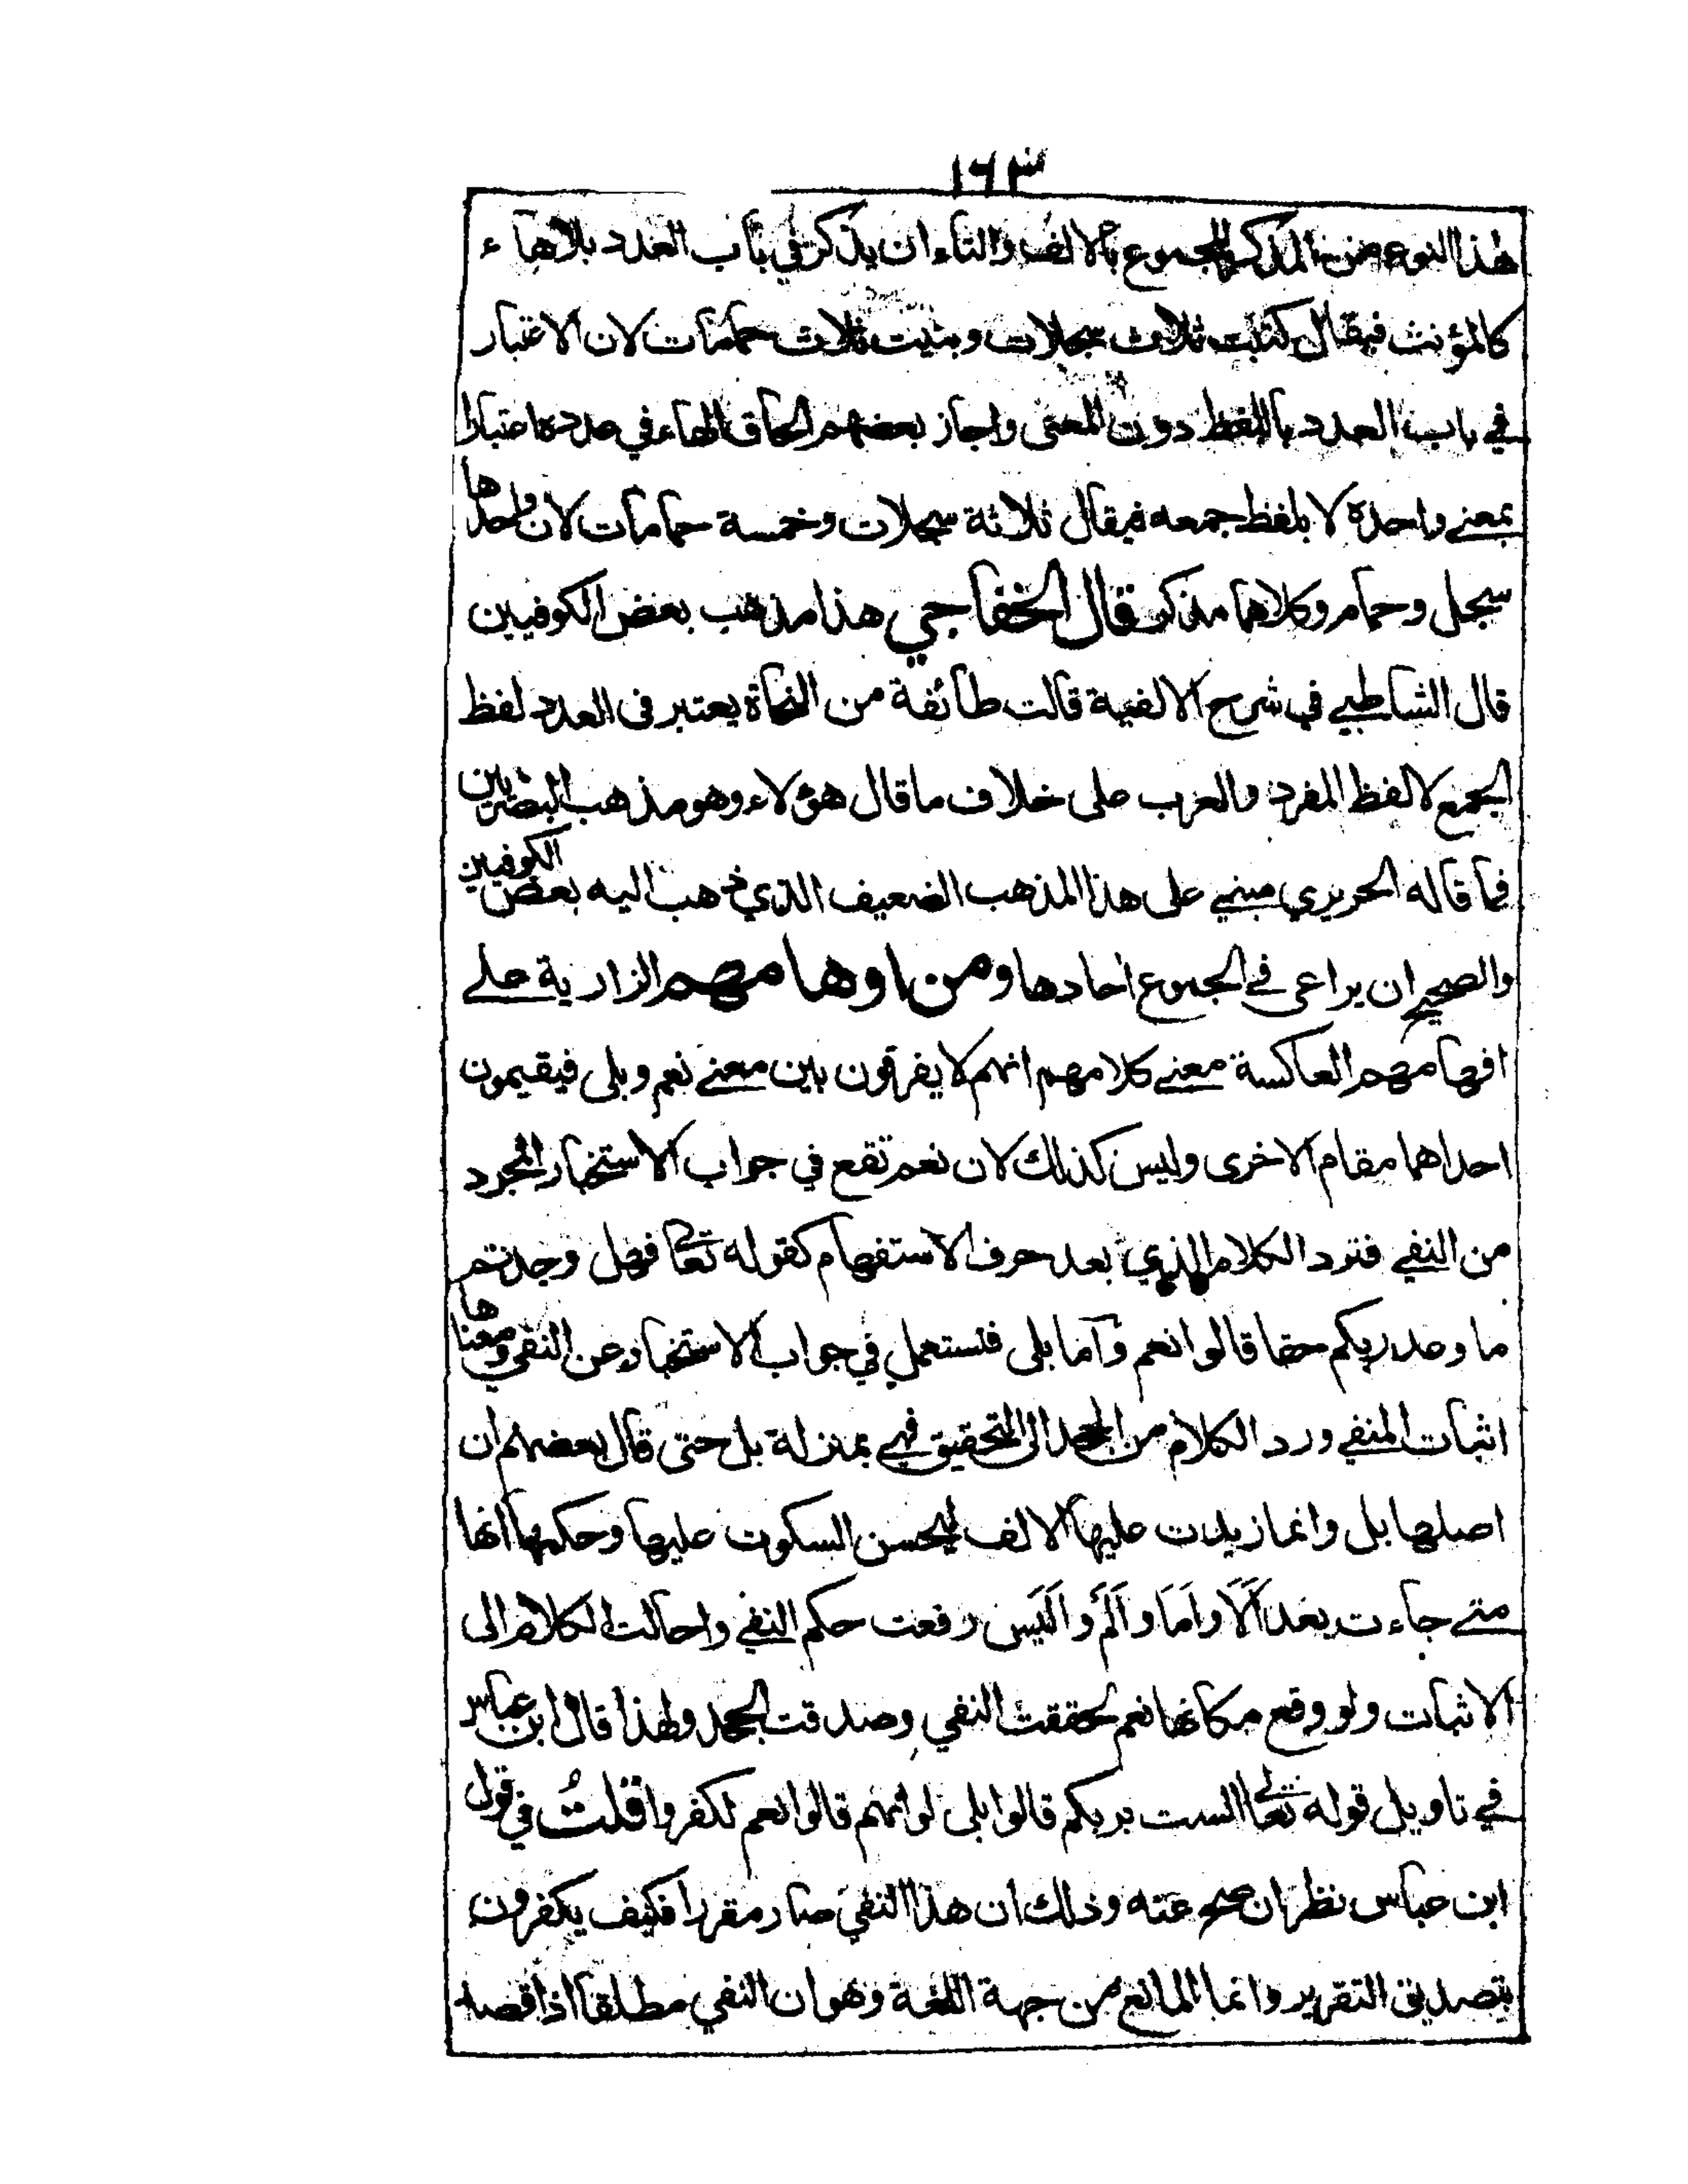 ١٦٣
هذا النوع من المذكر المجموع بالالف والتاء ان يذكر في باب العدد بلا هاء
كالمؤنث فيقال كتبت ثلاث سجلات وبنيت ثلاث حمامات لان الاعتبار
في باب العدد باللفظ دون المعنى واجاز بعضهم الحاق الهاء في عدده اعتبارا
بمعنے واحده لا بلفظ جمعه فيقال ثلاثة سجلات وخمسة حمامات لان واحدها
سجل وحمام وكلاهما مذكر قال الخفاجي هذا مذهب بعض الكوفيين
قال الشاطبے في شرح الالفية قالت طائفة من النحاة يعتبر فى العدد لفظ
الجمع لا لفظ المفرد والعرب على خلاف ما قال هؤلاء وهو مذهب البصريين
فما قاله الحريري مبنے على هذا المذهب الضعيف الذي ذهب اليه بعض الكوفيين
والصحيح ان يراعى فے الجموع احادها ومن اوهامهم الزارية علے
افهامهم العاكسة معنے كلامهم انهم لا يفرقون بين معنے نعم وبلى فيقيمون
احداهما مقام الاخرى وليس كذلك لان نعم تقع في جواب الاستخبار المجرد
من النفے فترد الكلام الذي بعد حرف الاستفهام كقوله تعا فهل وجدتم
ما وعد ربكم حقا قالوا نعم وآما بلى فتستعمل في جواب الاستخبار عن النفي ومعناها
اثبات المنفے ورد الكلام من الجحد الى التحقيق فهے بمنزلة بل حتى قال بعضهم ان
اصلها بل وانما زيدت عليها الالف ليحسن السكوت عليها وحكمها انها
متے جاءت بعد اَلَا واَمَا واَلَمْ واَلَيَس رفعت حكم النفے واحالت الكلام الى
الاثبات ولو وقع مكانها نعم لحققت النفي وصدقت الجحد ولهذا قال ابن عباس
في تاويل قوله تعالى الست بربكم قالوا بلى لو انهم قالوا نعم لكفروا قلتُ في قول
ابن عباس نظر ان صح عنه وذلك ان هذا النفي صار مقررا فكيف يكفرون
بتصديق التقرير وانما المانع من جهة اللغة وهو ان النفي مطلقا اذا قصد